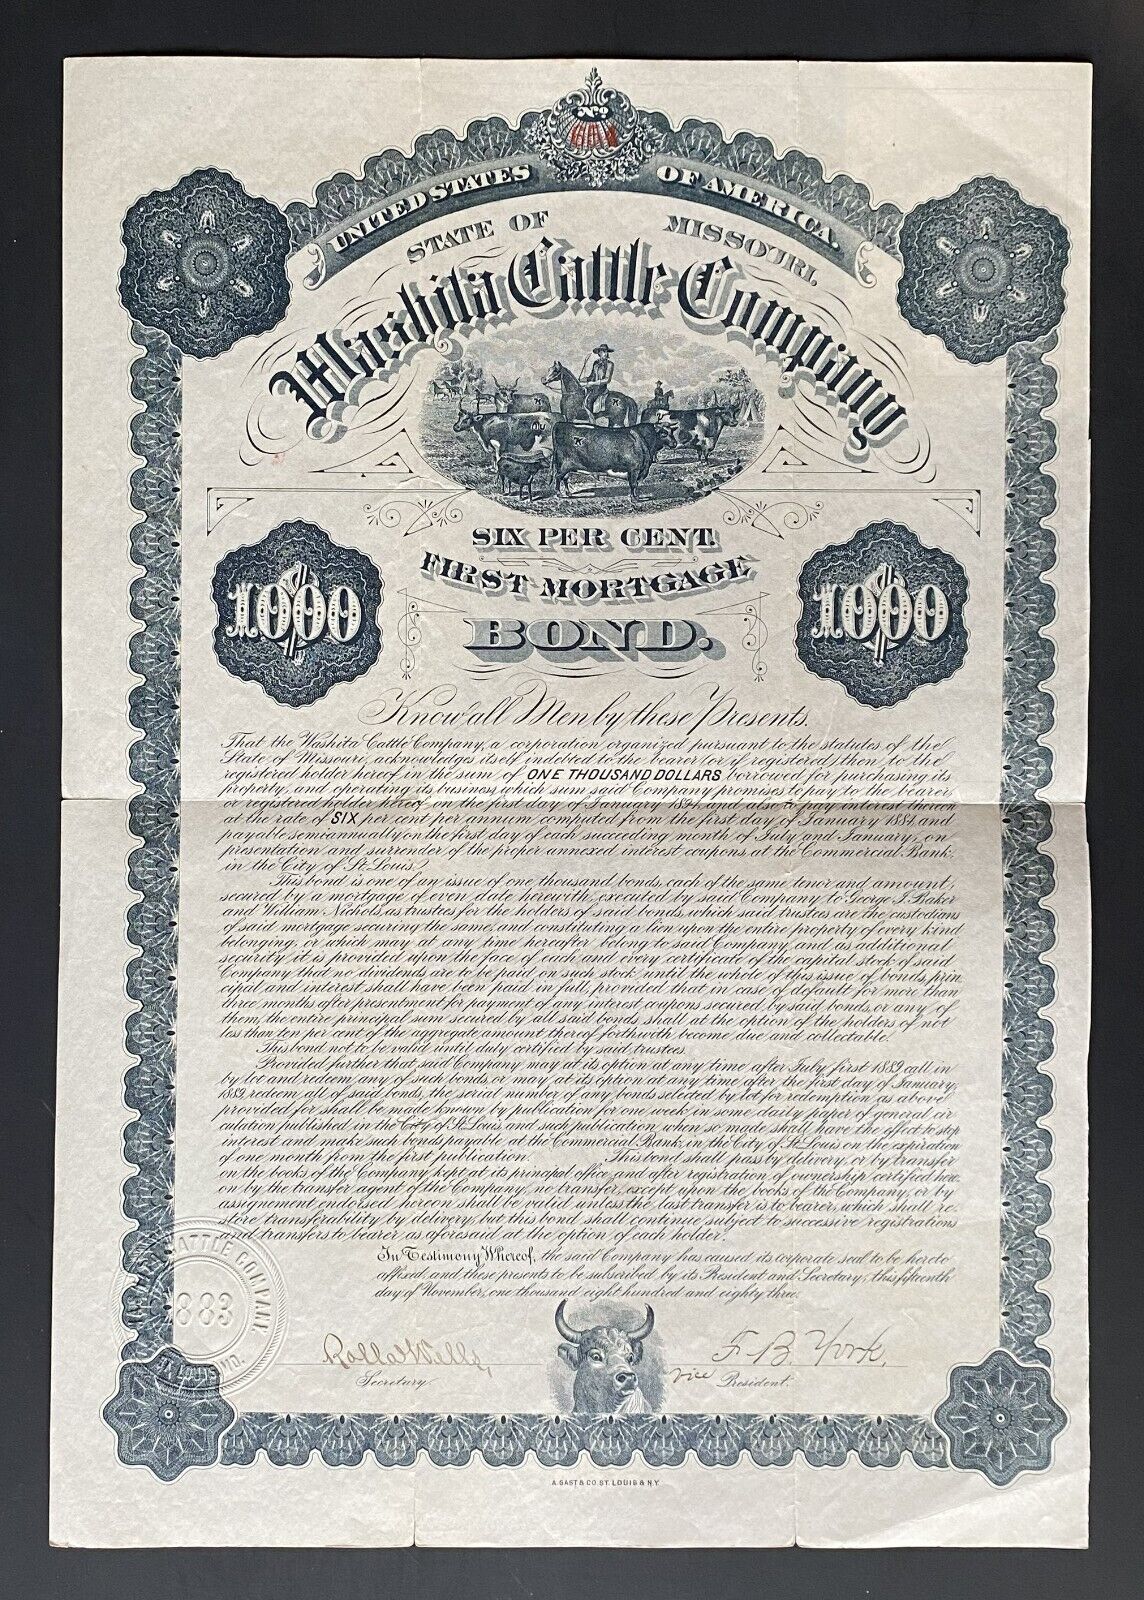 No
UNITED STATES OF AMERICA.
STATE OF MISSOURI.
Washita Cattle Company
SIX PER CENT.
FIRST MORTGAGE
1000 BOND. 1000
Know all Men by these Presents.
That the Washita Cattle Company, a corporation organized pursuant to the statutes of the
State of Missouri, acknowledges itself indebted to the bearer (or if registered) then to the
registered holder hereof in the sum of ONE THOUSAND DOLLARS borrowed for purchasing its
property, and operating its business, which sum said Company promises to pay to the bearer,
or registered holder hereof, on the first day of January 1894, and also to pay interest thereon
at the rate of SIX per cent per annum computed from the first day of January 1884, and
payable semiannually on the first day of each succeeding month of July and January, on
presentation and surrender of the proper annexed interest coupons, at the Commercial Bank,
in the City of St. Louis.
This bond is one of an issue of one thousand bonds, each of the same tenor and amount,
secured by a mortgage of even date herewith, executed by said Company to George J. Baker
and William Nichols, as trustees for the holders of said bonds, which said trustees are the custodians
of said mortgage securing the same, and constituting a lien upon the entire property of every kind
belonging, or which may at any time hereafter belong to said Company, and as additional
security it is provided upon the face of each and every certificate of the capital stock of said
Company that no dividends are to be paid on such stock, until the whole of this issue of bonds, prin
cipal and interest shall have been paid in full, provided that in case of default for more than
three months after presentment for payment of any interest coupons secured by said bonds, or any of
them, the entire principal sum secured by all said bonds, shall at the option of the holders of not
less than ten per cent of the aggregate amount thereof forthwith become due and collectable.
This bond not to be valid until duly certified by said trustees.
Provided further that said Company may at its option at any time after July first 1889, call in
by lot and redeem, any of such bonds, or may at its option at any time after the first day of January,
1889, redeem all of said bonds, the serial number of any bonds selected by lot for redemption as above
provided for shall be made known by publication for one week in some daily paper of general cir
culation published in the City of St. Louis and such publication, when so made shall have the effect to stop
interest and make such bonds payable at the Commercial Bank, in the City of St. Louis on the expiration
of one month from the first publication. This bond shall pass by delivery, or by transfer
on the books of the Company kept at its principal office, and after registration of ownership certified here
on by the transfer agent of the Company, no transfer, except upon the books of the Company, or by
assignement endorsed hereon shall be valid unless the last transfer is to bearer, which shall re.
store transferability by delivery, but this bond shall continue subject to successive registrations
and transfers to bearer as aforesaid at the option of each holder.
In Testimony Whereof, the said Company has caused its corporate seal to be hereto
affixed, and these presents to be subscribed by its President and Secretary, this fifteenth
day of November, one thousand eight hundred and eighty three.
CATTLE COMPANY
1883
ST. LOUIS MO.
Rolla Wells F. B. York,
Secretary. vice President.
A. GAST & CO. ST. LOUIS & N.Y.